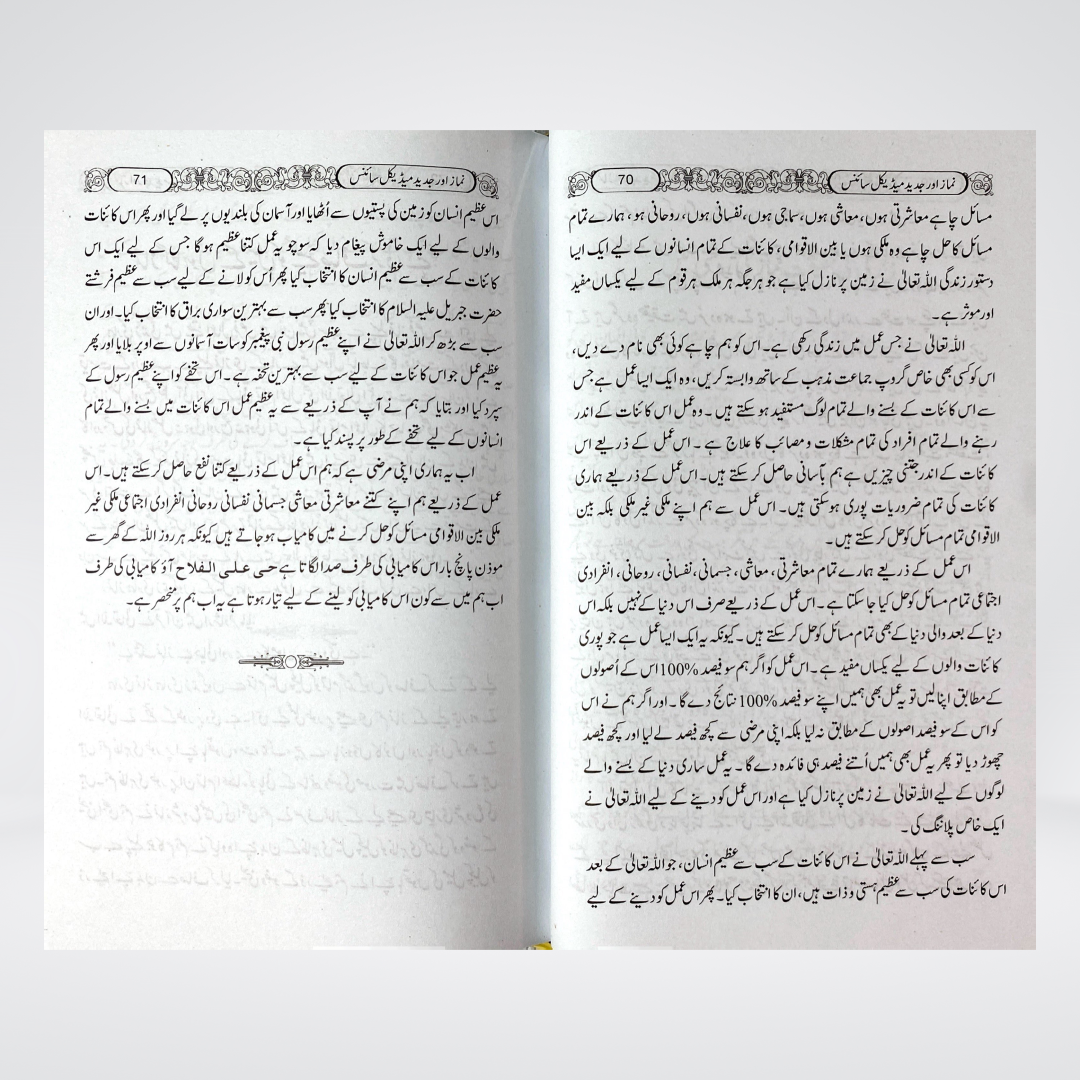 نماز اور جدید میڈیکل سائنس 70
مسائل چاہے معاشرتی ہوں، معاشی ہوں، سماجی ہوں، نفسانی ہوں، روحانی ہو، ہمارے تمام
مسائل کا حل چاہے وہ ملکی ہوں یا بین الاقوامی، کائنات کے تمام انسانوں کے لیے ایک ایسا
دستور زندگی اللہ تعالیٰ نے زمین پر نازل کیا ہے جو ہر جگہ ہر ملک ہر قوم کے لیے یکساں مفید
اور موثر ہے۔
اللہ تعالیٰ نے جس عمل میں زندگی رکھی ہے۔ اس کو ہم چاہے کوئی بھی نام دے دیں،
اس کو کسی بھی خاص گروپ جماعت مذہب کے ساتھ وابستہ کریں، وہ ایک ایسا عمل ہے جس
سے اس کائنات کے بسنے والے تمام لوگ مستفید ہو سکتے ہیں۔ وہ عمل اس کائنات کے اندر
رہنے والے تمام افراد کی تمام مشکلات و مصائب کا علاج ہے۔ اس عمل کے ذریعے اس
کائنات کے اندر جتنی چیزیں ہے ہم بآسانی حاصل کر سکتے ہیں۔ اس عمل کے ذریعے ہماری
کائنات کی تمام ضروریات پوری ہوسکتی ہیں۔ اس عمل سے ہم اپنے ملکی غیر ملکی بلکہ بین
الاقوامی تمام مسائل کو حل کر سکتے ہیں۔
اس عمل کے ذریعے ہمارے تمام معاشرتی، معاشی، جسمانی، نفسانی، روحانی، انفرادی
اجتماعی تمام مسائل کو حل کیا جا سکتا ہے۔ اس عمل کے ذریعے صرف اس دنیا کے نہیں بلکہ اس
دنیا کے بعد والی دنیا کے بھی تمام مسائل کو حل کر سکتے ہیں۔ کیونکہ یہ ایک ایسا عمل ہے جو پوری
کائنات والوں کے لیے یکساں مفید ہے۔ اس عمل کو اگر ہم سو فیصد 100% اس کے اُصولوں
کے مطابق اپنا لیں تو یہ عمل بھی ہمیں اپنے سو فیصد 100% نتائج دے گا۔ اور اگر ہم نے اس
کو اس کے سو فیصد اصولوں کے مطابق نہ لیا بلکہ اپنی مرضی سے کچھ فیصد لے لیا اور کچھ فیصد
چھوڑ دیا تو پھر یہ عمل بھی ہمیں اُتنے فیصد ہی فائدہ دے گا۔ یہ عمل ساری دنیا کے بسنے والے
لوگوں کے لیے اللہ تعالیٰ نے زمین پر نازل کیا ہے اور اس عمل کو دینے کے لیے اللہ تعالیٰ نے
ایک خاص پلاننگ کی۔
سب سے پہلے اللہ تعالیٰ نے اس کائنات کے سب سے عظیم انسان، جو اللہ تعالیٰ کے بعد
اس کائنات کی سب سے عظیم ہستی و ذات ہیں، ان کا انتخاب کیا۔ پھر اس عمل کو دینے کے لیے
نماز اور جدید میڈیکل سائنس 71
اس عظیم انسان کو زمین کی پستیوں سے اُٹھایا اور آسمان کی بلندیوں پر لے گیا اور پھر اس کائنات
والوں کے لیے ایک خاموش پیغام دیا کہ سوچو یہ عمل کتنا عظیم ہوگا جس کے لیے ایک اس
کائنات کے سب سے عظیم انسان کا انتخاب کیا پھر اُس کو لانے کے لیے سب سے عظیم فرشتے
حضرت جبریل علیہ السلام کا انتخاب کیا پھر سب سے بہترین سواری براق کا انتخاب کیا۔ اور ان
سب سے بڑھ کر اللہ تعالیٰ نے اپنے عظیم رسول نبی پیغمبر کو سات آسمانوں سے اوپر بلایا اور پھر
یہ عظیم عمل جو اس کائنات کے لیے سب سے بہترین تحفہ ہے۔ اس تحفے کو اپنے عظیم رسول کے
سپرد کیا اور بتایا کہ ہم نے آپ کے ذریعے سے یہ عظیم عمل اس کائنات میں بسنے والے تمام
انسانوں کے لیے تحفے کے طور پر پسند کیا ہے۔
اب یہ ہماری اپنی مرضی ہے کہ ہم اس عمل کے ذریعے کتنا نفع حاصل کر سکتے ہیں۔ اس
عمل کے ذریعے ہم اپنے کتنے معاشرتی معاشی جسمانی نفسانی روحانی انفرادی اجتماعی ملکی غیر
ملکی بین الاقوامی مسائل کو حل کرنے میں کامیاب ہو جاتے ہیں کیونکہ ہر روز اللہ کے گھر سے
موذن پانچ بار اس کامیابی کی طرف صدا لگاتا ہے حی علی الفلاح آؤ کامیابی کی طرف
اب ہم میں سے کون اس کامیابی کو لینے کے لیے تیار ہوتا ہے یہ اب ہم پر منحصر ہے۔